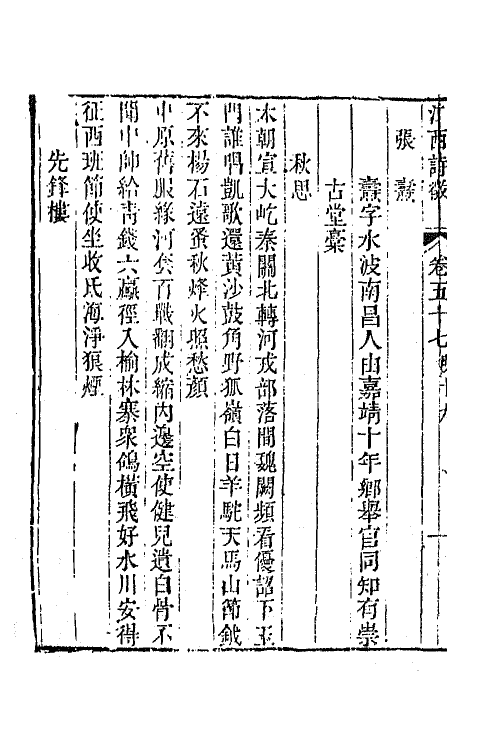 江西詩徵 卷五十七 明十九 一
張燾
燾字水波南昌人由嘉靖十年鄉舉官同知有崇
古堂稾
秋思
本朝宣大屹秦關北轉河戎部落間魏闕頻看優詔下玉
門誰唱凱歌還黃沙鼓角野狐嶺白日羊駝天馬山節鉞
不來楊石遠蚤秋烽火照愁顏
中原舊服緣河套百戰翻成縮內邊空使健兒遺白骨不
聞中帥給靑錢六羸徑入榆林寨衆鴿橫飛好水川安得
征西班節使坐收氐海淨狼煙
先鋒樓